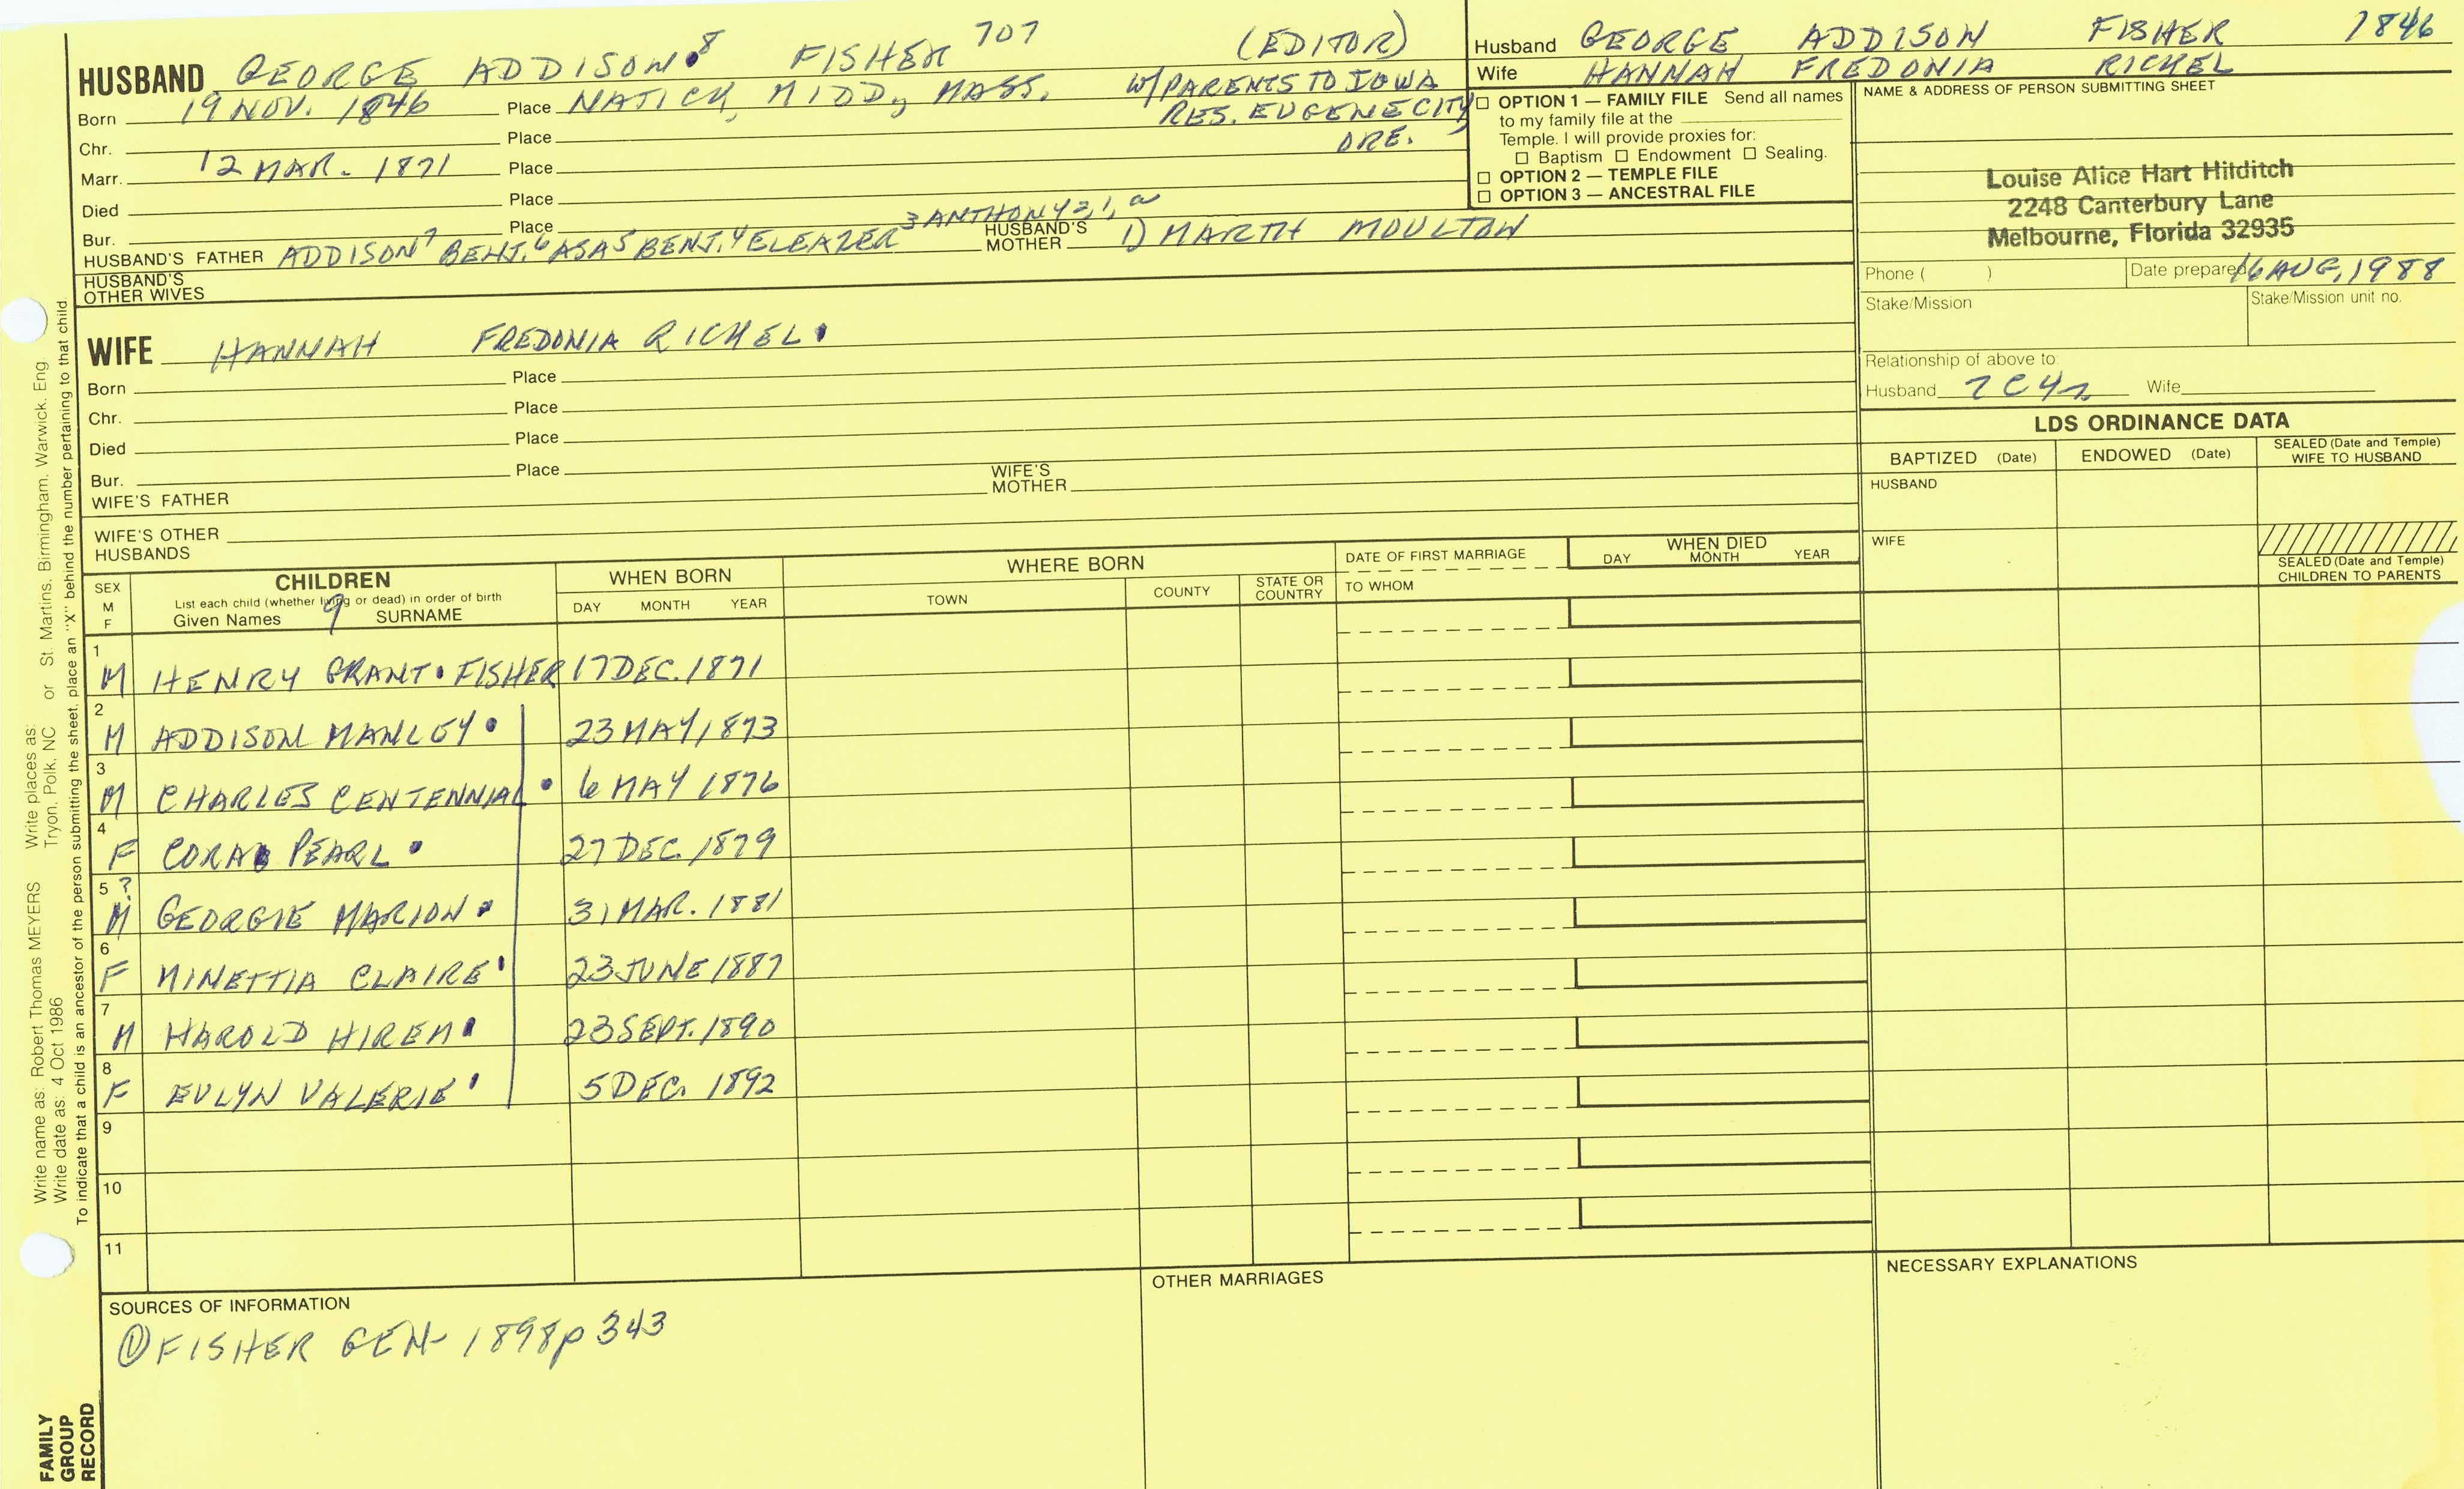 HUSBAND GEORGE ADDISON 8 FISHER 707 (EDITOR)
Born 19 NOV. 1846 Place NATICK, MIDD, MASS. W/PARENTS TO IOWA
RES. EUGENE CITY
ORE.
Chr. Place
Marr. 12 MAR. 1871 Place
Died Place
Bur. Place
HUSBAND'S FATHER ADDISON 7 BENJ. 6 ASA 5 BENJ. 4 ELEAZER 3 ANTHONY 2, 1, a HUSBAND'S MOTHER 1) MARTH MOULTON
HUSBAND'S
OTHER WIVES
WIFE HANNAH FREDONIA RICKEL
Born Place
Chr. Place
Died Place
Bur. Place
WIFE'S FATHER WIFE'S MOTHER
WIFE'S OTHER
HUSBANDS
Husband GEORGE ADDISON FISHER 1846
Wife HANNAH FREDONIA RICKEL
OPTION 1 — FAMILY FILE Send all names
to my family file at the
Temple. I will provide proxies for:
Baptism Endowment Sealing.
OPTION 2 — TEMPLE FILE
OPTION 3 — ANCESTRAL FILE
NAME & ADDRESS OF PERSON SUBMITTING SHEET
Louise Alice Hart Hilditch
2248 Canterbury Lane
Melbourne, Florida 32935
Phone ( ) Date prepared 16 AUG, 1988
Stake/Mission Stake/Mission unit no.
Relationship of above to:
Husband 7C4r Wife
LDS ORDINANCE DATA
BAPTIZED (Date) ENDOWED (Date) SEALED (Date and Temple) WIFE TO HUSBAND
HUSBAND
WIFE
SEALED (Date and Temple)
CHILDREN TO PARENTS
SEX M F CHILDREN WHEN BORN WHERE BORN DATE OF FIRST MARRIAGE WHEN DIED
List each child (whether living or dead) in order of birth
Given Names 9 SURNAME DAY MONTH YEAR TOWN COUNTY STATE OR COUNTRY TO WHOM DAY MONTH YEAR
1 M HENRY GRANT FISHER 17 DEC. 1871
2 M ADDISON MANLEY 23 MAY, 1873
3 M CHARLES CENTENNIAL 6 MAY 1876
4 F CORA PEARL 27 DEC. 1879
5 ? M GEORGIE MARION 31 MAR. 1881
6 F MINETTIA CLAIRE 23 JUNE 1887
7 M HAROLD HIREM 23 SEPT. 1890
8 F EVLYN VALERIE 5 DEC. 1892
9
10
11
SOURCES OF INFORMATION
① FISHER GEN- 1898 p 343
OTHER MARRIAGES
NECESSARY EXPLANATIONS
Write name as: Robert Thomas MEYERS Write places as: Tryon, Polk, NC or St. Martins, Birmingham, Warwick, Eng
Write date as: 4 Oct 1986
To indicate that a child is an ancestor of the person submitting the sheet, place an "X" behind the number pertaining to that child.
FAMILY
GROUP
RECORD